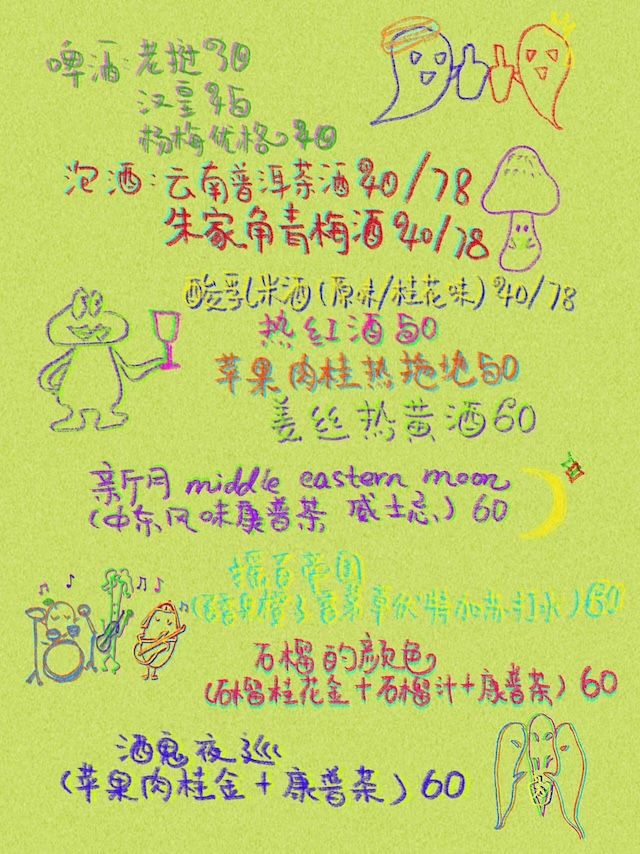 啤酒:老挝30
汉皇45
杨梅优格40
泡酒:云南普洱茶酒40/78
朱家角青梅酒40/78
酸乳米酒(原味/桂花味)40/78
热红酒50
苹果肉桂热拖地50
姜丝热黄酒60
新月 middle eastern moon
(中东风味康普茶 威士忌)60
摇石帝国
加苏打水)60
石榴的颜色
(石榴桂花金+石榴汁+康普茶)60
酒鬼夜巡
(苹果肉桂金+康普茶)60